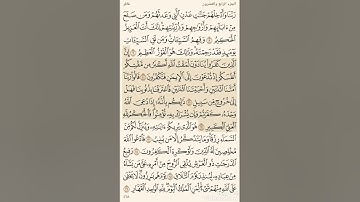 الجزء الرابع والعشرون غافر
رَبَّنَا وَأَدْخِلْهُمْ جَنَّٰتِ عَدْنٍ ٱلَّتِى وَعَدتَّهُمْ وَمَن صَلَحَ
مِنْ ءَابَآئِهِمْ وَأَزْوَٰجِهِمْ وَذُرِّيَّٰتِهِمْ إِنَّكَ أَنتَ ٱلْعَزِيزُ
ٱلْحَكِيمُ ٨ وَقِهِمُ ٱلسَّيِّـَٔاتِ وَمَن تَقِ ٱلسَّيِّـَٔاتِ
يَوْمَئِذٍ فَقَدْ رَحِمْتَهُۥ وَذَٰلِكَ هُوَ ٱلْفَوْزُ ٱلْعَظِيمُ ٩ إِنَّ
ٱلَّذِينَ كَفَرُوا۟ يُنَادَوْنَ لَمَقْتُ ٱللَّهِ أَكْبَرُ مِن مَّقْتِكُمْ
أَنفُسَكُمْ إِذْ تُدْعَوْنَ إِلَى ٱلْإِيمَٰنِ فَتَكْفُرُونَ ١٠ قَالُوا۟
رَبَّنَآ أَمَتَّنَا ٱثْنَتَيْنِ وَأَحْيَيْتَنَا ٱثْنَتَيْنِ فَٱعْتَرَفْنَا بِذُنُوبِنَا فَهَلْ
إِلَىٰ خُرُوجٍ مِّن سَبِيلٍ ١١ ذَٰلِكُم بِأَنَّهُۥٓ إِذَا دُعِىَ ٱللَّهُ
وَحْدَهُۥ كَفَرْتُمْ وَإِن يُشْرَكْ بِهِۦ تُؤْمِنُوا۟ فَٱلْحُكْمُ لِلَّهِ
ٱلْعَلِىِّ ٱلْكَبِيرِ ١٢ هُوَ ٱلَّذِى يُرِيكُمْ ءَايَٰتِهِۦ وَيُنَزِّلُ لَكُم مِّنَ
ٱلسَّمَآءِ رِزْقًا وَمَا يَتَذَكَّرُ إِلَّا مَن يُنِيبُ ١٣ فَٱدْعُوا۟ ٱللَّهَ
مُخْلِصِينَ لَهُ ٱلدِّينَ وَلَوْ كَرِهَ ٱلْكَٰفِرُونَ ١٤ رَفِيعُ
ٱلدَّرَجَٰتِ ذُو ٱلْعَرْشِ يُلْقِى ٱلرُّوحَ مِنْ أَمْرِهِۦ عَلَىٰ مَن يَشَآءُ
مِنْ عِبَادِهِۦ لِيُنذِرَ يَوْمَ ٱلتَّلَاقِ ١٥ يَوْمَ هُم بَٰرِزُونَ لَا يَخْفَىٰ
عَلَى ٱللَّهِ مِنْهُمْ شَىْءٌ لِّمَنِ ٱلْمُلْكُ ٱلْيَوْمَ لِلَّهِ ٱلْوَٰحِدِ ٱلْقَهَّارِ ١٦
٤٦٨